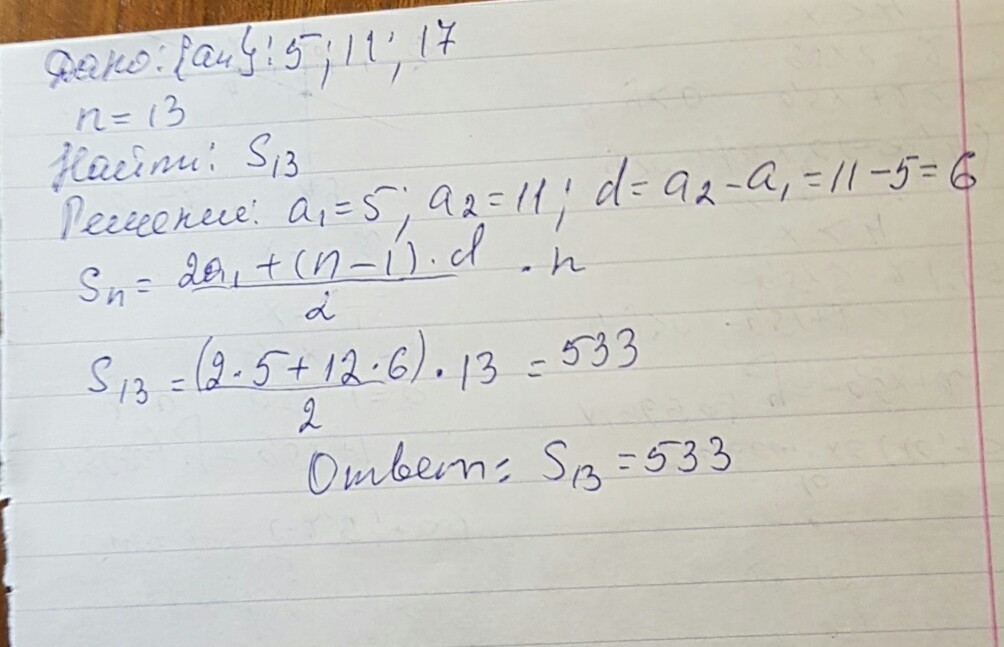 Дано: {an}: 5; 11; 17
n = 13
Найти: S13
Решение: a1 = 5; a2 = 11; d = a2 - a1 = 11 - 5 = 6
Sn = (2a1 + (n - 1) · d)/2 · n
S13 = (2·5 + 12·6)/2 · 13 = 533
Ответ: S13 = 533